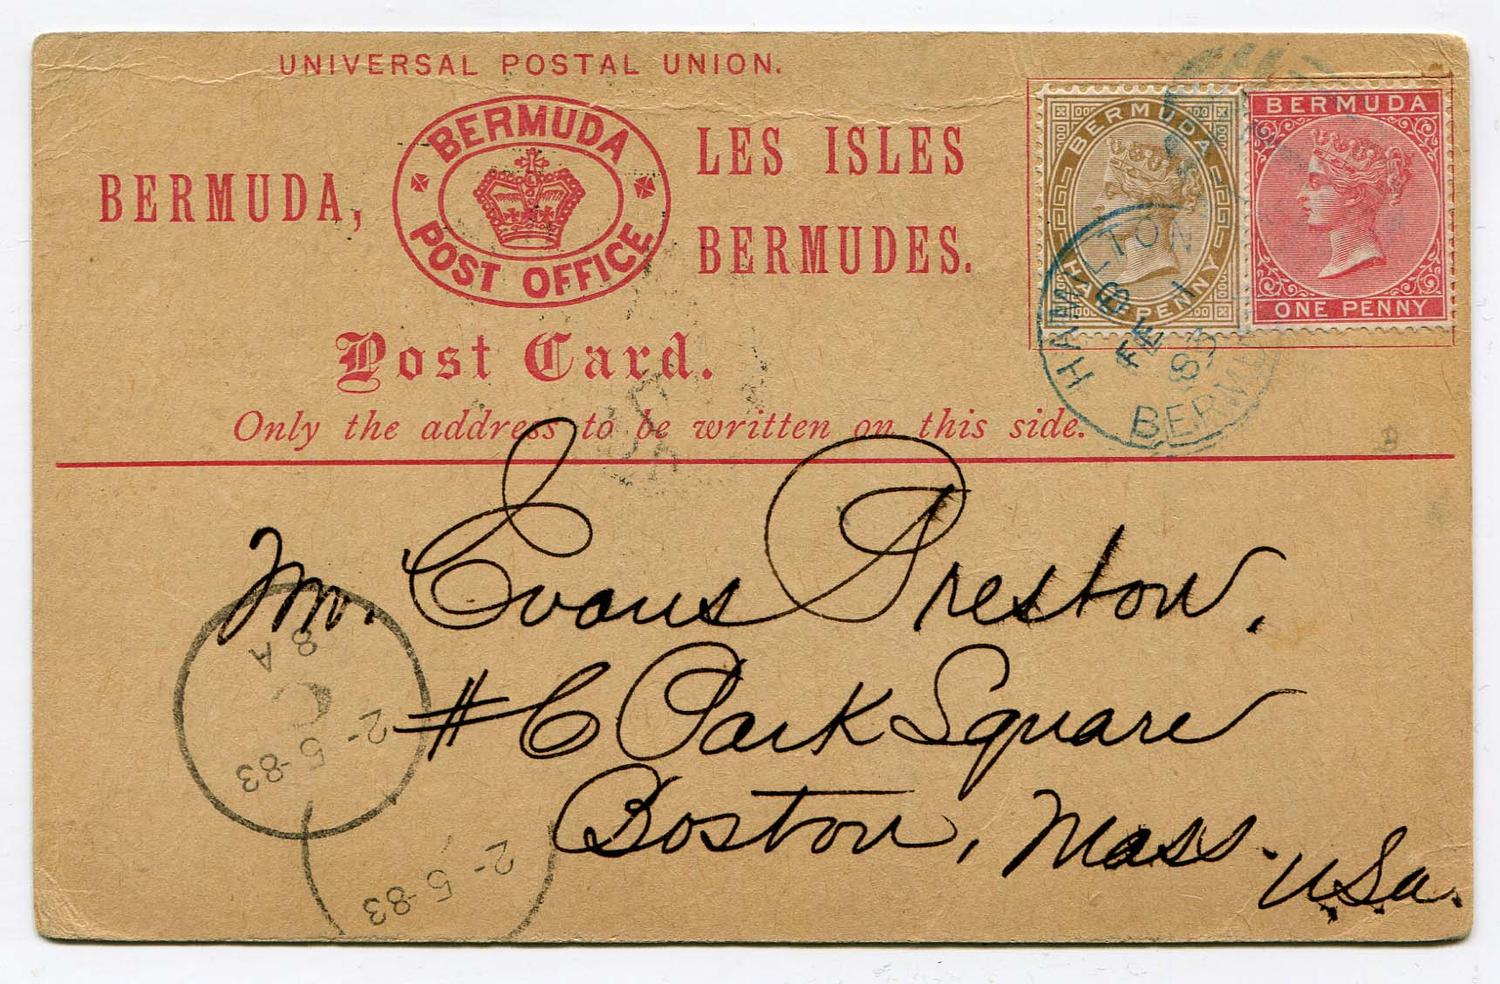 UNIVERSAL POSTAL UNION.
BERMUDA,
BERMUDA
POST OFFICE
LES ISLES
BERMUDES.
Post Card.
Only the address to be written on this side.
BERMUDA
HALFPENNY
BERMUDA
ONE PENNY
HAMILTON
B
FE 1
83
BERMU
B
Mr. Evans Preston.
#6 Park Square
Boston, Mass.
U.S.a.
8 A
2-5-83
2-5-83